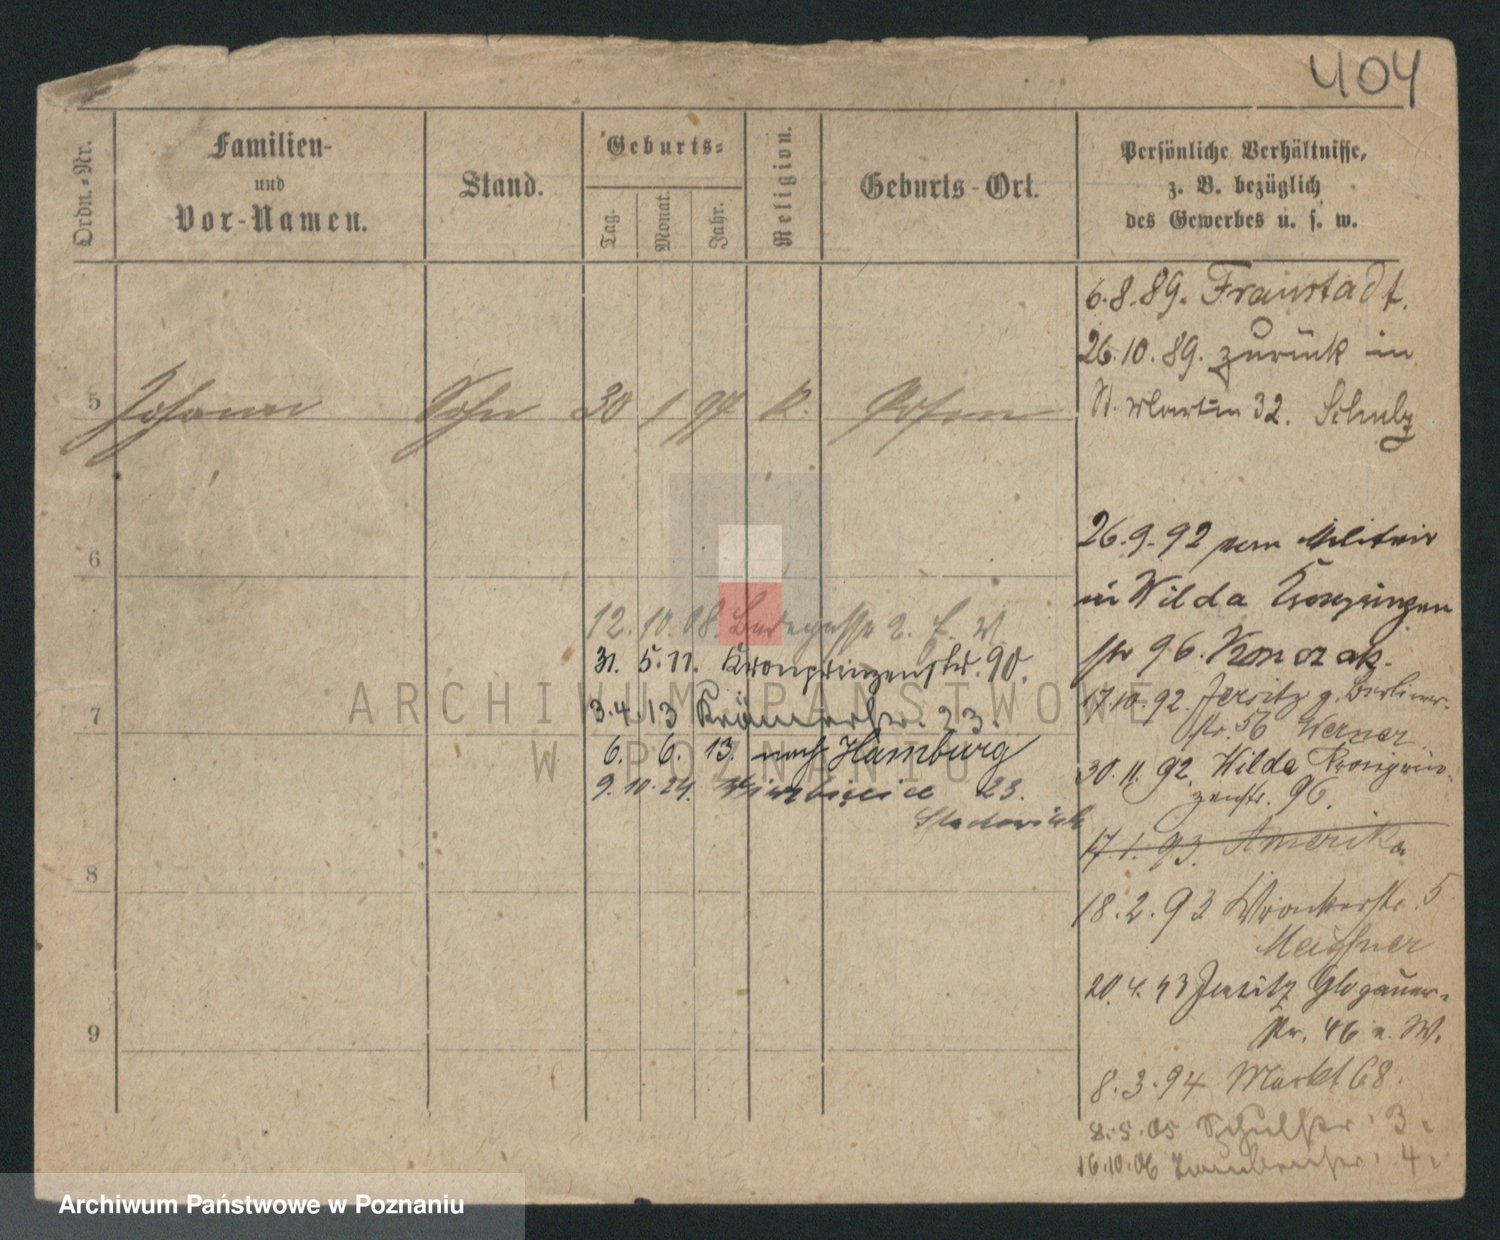 404
Ordn.-Nr.
Familien-
und
Vor-Namen.
Stand.
Geburts-
Tag.
Monat.
Jahr.
Religion.
Geburts-Ort.
Persönliche Verhältnisse,
z. B. bezüglich
des Gewerbes u. s. w.
5 Johann Sohn 30 1 94 K. Posen
6
7
8
9
6.8.89. Fraustadt.
26.10.89. zurück in
St. Martin 32. Schulz
26.9.92 vom Militair
in Wilda Kronprinzen
str 96. Konczak.
17.10.92. Jersitz gr. Berliner-
str. 56 Werner
30.11.92. Wilda Kronprin-
zenstr. 96.
17.1.93. Amerika
18.2.93 Wronkerstr. 5
Meißner
20.4.93 Jersitz Glogauer-
str. 46 a. W.
8.3.94 Markt 68.
8.5.05 Schulstr. 3
16.10.06 4
12.10.08.
31. 5. 11. Kronprinzenstr. 90.
3.4.13 Krämerstr. 23.
6. 6. 13. nach Hamburg
9. 10. 24. 23.
ARCHIWUM PAŃSTWOWE
W POZNANIU
Archiwum Państwowe w Poznaniu